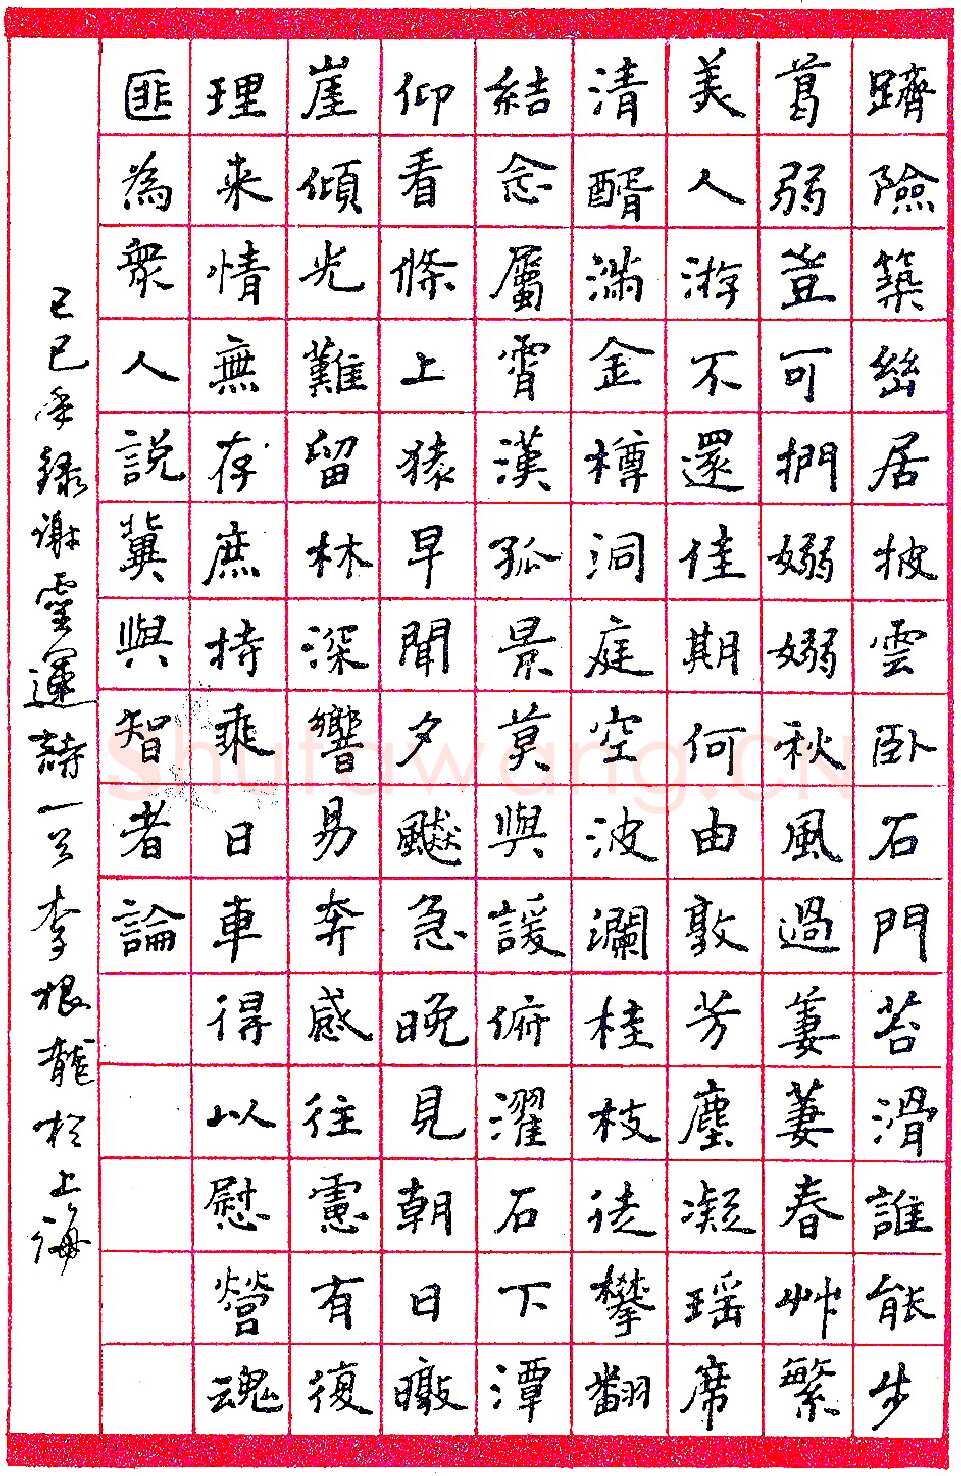 躋險築幽居披雲卧石門苔滑誰能步
葛弱豈可捫嫋嫋秋風過萋萋春艸繁
美人游不還佳期何由敦芳塵凝瑶席
清醑滿金樽洞庭空波瀾桂枝徒攀翻
結念屬霄漢孤景莫與諼俯濯石下潭
仰看條上猿早聞夕飈急晚見朝日暾
崖傾光難留林深響易奔感往慮有復
理来情無存庶持乘日車得以慰營魂
匪為衆人說冀與智者論
己巳年録謝靈運詩一首李根龍於上海
Shufawang.CN